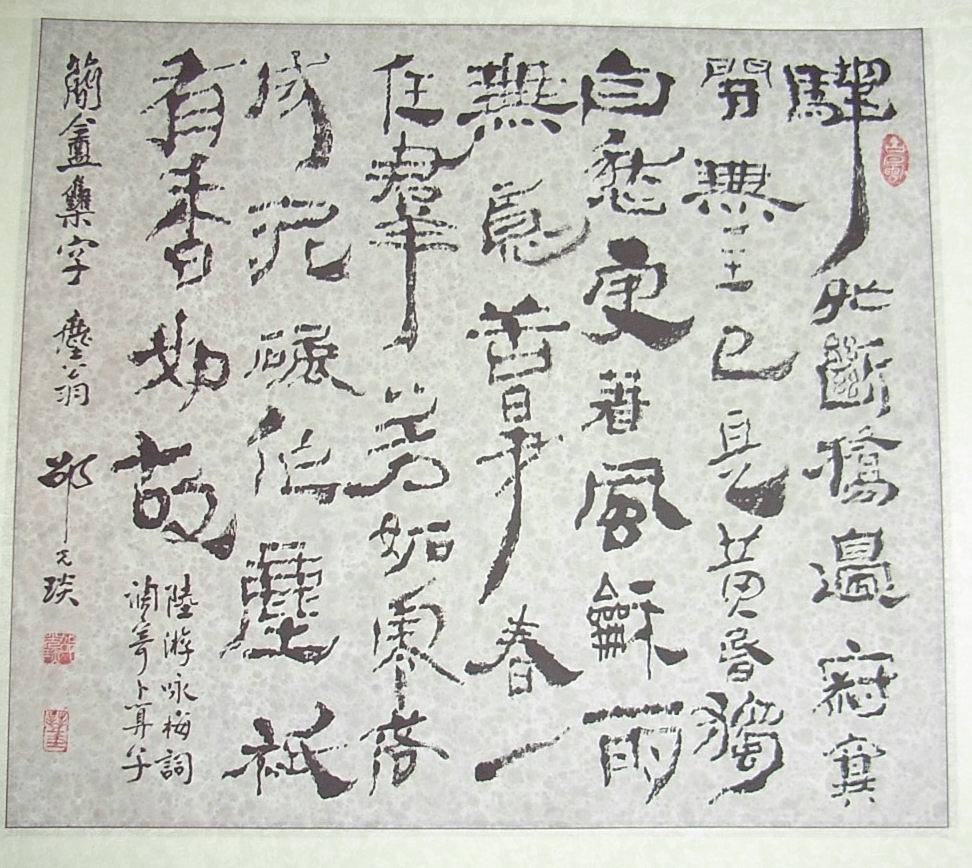 驛外斷橋邊寂寞
開無主已是黃昏獨
自愁更著風龢雨
無意苦爭春一
任羣芳妬零落
成泥碾作塵祇
有香如故
陸游咏梅詞
調寄卜算子
簡盦集字 塵翁 元琰